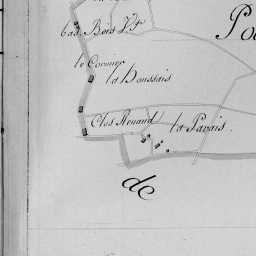 bas Bois
Po
le Cormier
la Houssais
Clos Renaud
la Parais.
de